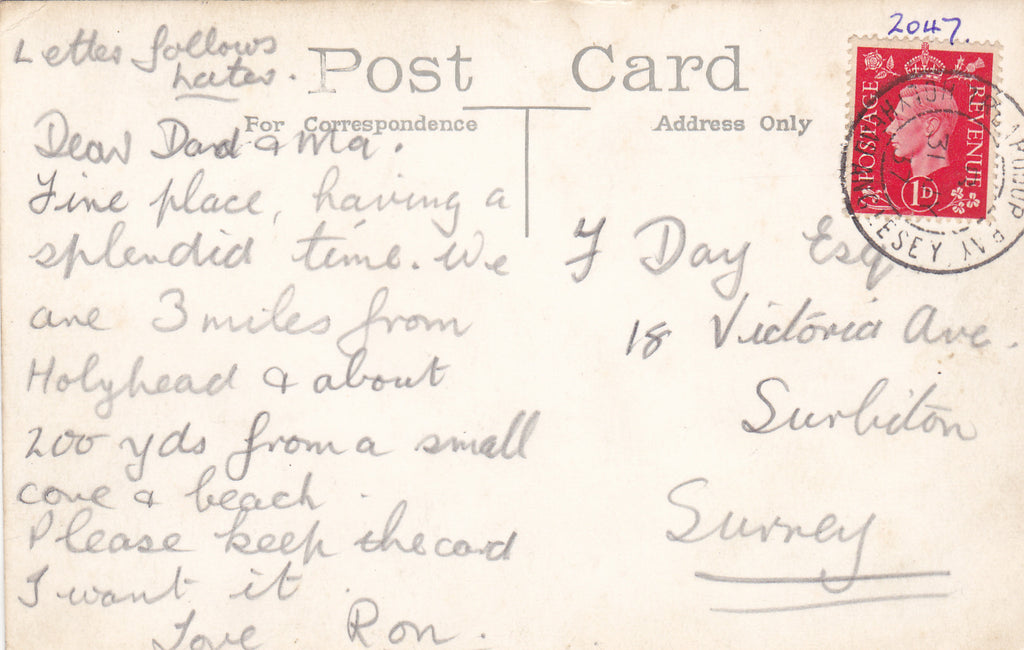 Letter follows
Later.
Post Card
For Correspondence
Address Only
Dear Dad & Ma.
Fine place, having a
splendid time. We
are 3 miles from
Holyhead & about
200 yds from a small
cove & beach.
Please keep the card
I want it
Love Ron.
2047.
POSTAGE
REVENUE
1D
HOLYHEAD
BAY
ANGLESEY
31
F Day Esq
18 Victoria Ave.
Surbiton
Surrey